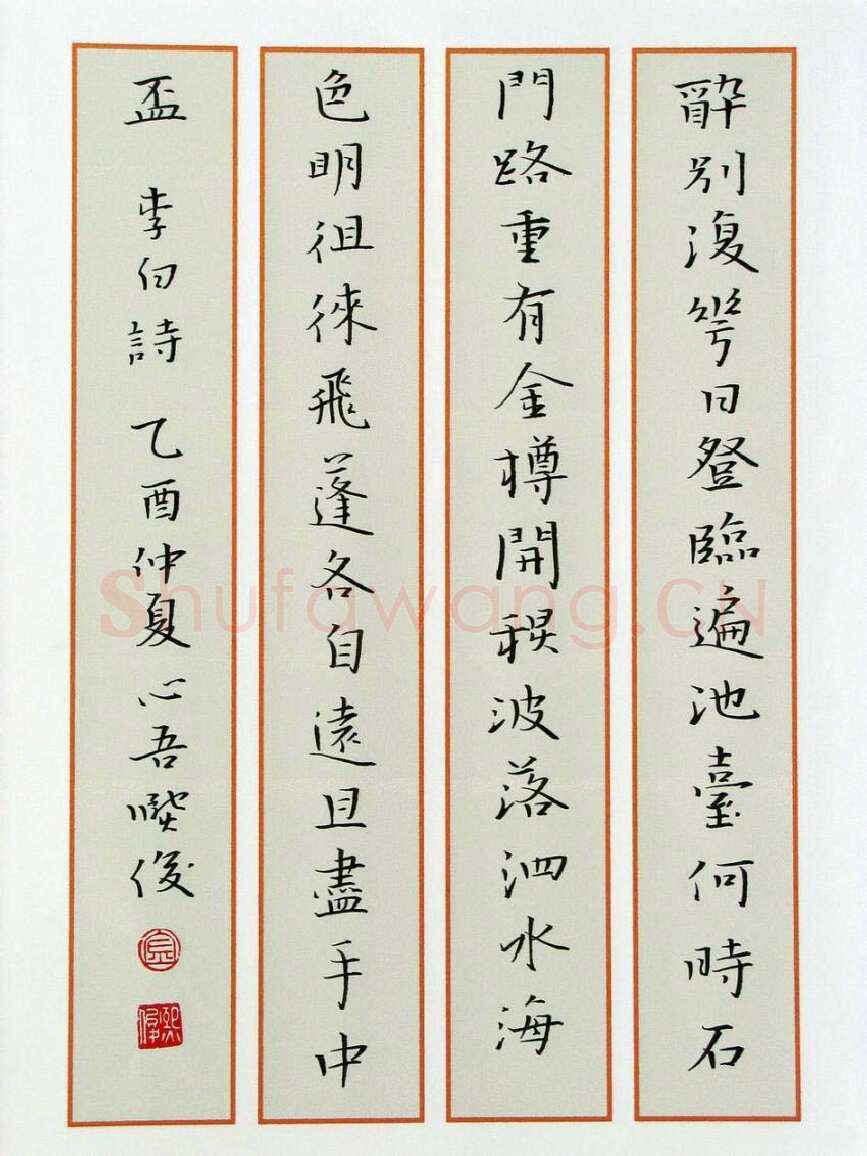 醉別復幾日登臨遍池臺何時石
門路重有金樽開秋波落泗水海
色明徂徠飛蓬各自遠且盡手中
盃 李白詩 乙酉仲夏心吾俊
Shufawang.CN